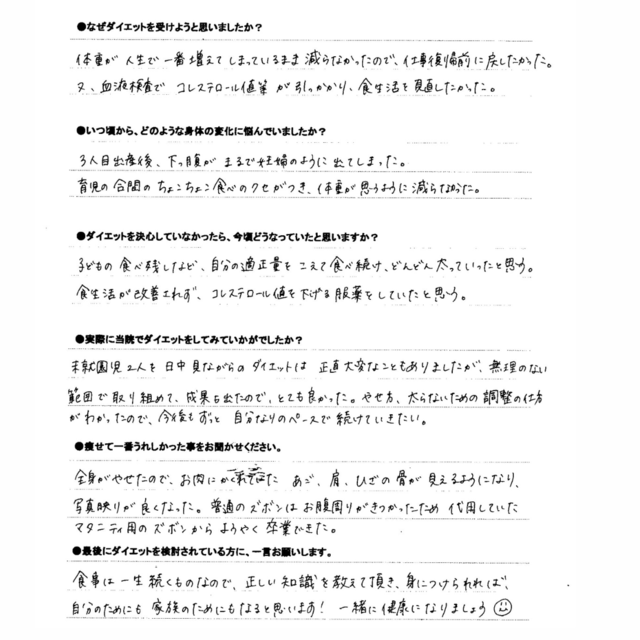 ●なぜダイエットを受けようと思いましたか？
体重が人生で一番増えてしまっているまま減らなかったので、仕事復帰前に戻したかった。
又、血液検査でコレステロール値等が引っかかり、食生活を見直したかった。
●いつ頃から、どのような身体の変化に悩んでいましたか？
3人目出産後、下っ腹がまるで妊婦のように出てしまった。
育児の合間のちょこちょこ食べのクセがつき、体重が思うように減らなかった。
●ダイエットを決心していなかったら、今頃どうなっていたと思いますか？
子どもの食べ残しなど、自分の適正量をこえて食べ続け、どんどん太っていったと思う。
食生活が改善されず、コレステロール値を下げる服薬をしていたと思う。
●実際に当院でダイエットをしてみていかがでしたか？
未就園児2人を日中見ながらのダイエットは正直大変なこともありましたが、無理のない
範囲で取り組めて、成果も出たので、とても良かった。やせ方、太らないための調整の仕方
がわかったので、今後もずっと自分なりのペースで続けていきたい。
●痩せて一番うれしかった事をお聞かせください。
全身がやせたので、お肉にかくれてた あご、肩、ひざの骨が見えるようになり、
写真映りが良くなった。普通のズボンはお腹周りがきつかったため代用していた
マタニティ用のズボンからようやく卒業できた。
●最後にダイエットを検討されている方に、一言お願いします。
食事は一生続くものなので、正しい知識を教えて頂き、身につけられれば、
自分のためにも家族のためにもなると思います！一緒に健康になりましょう